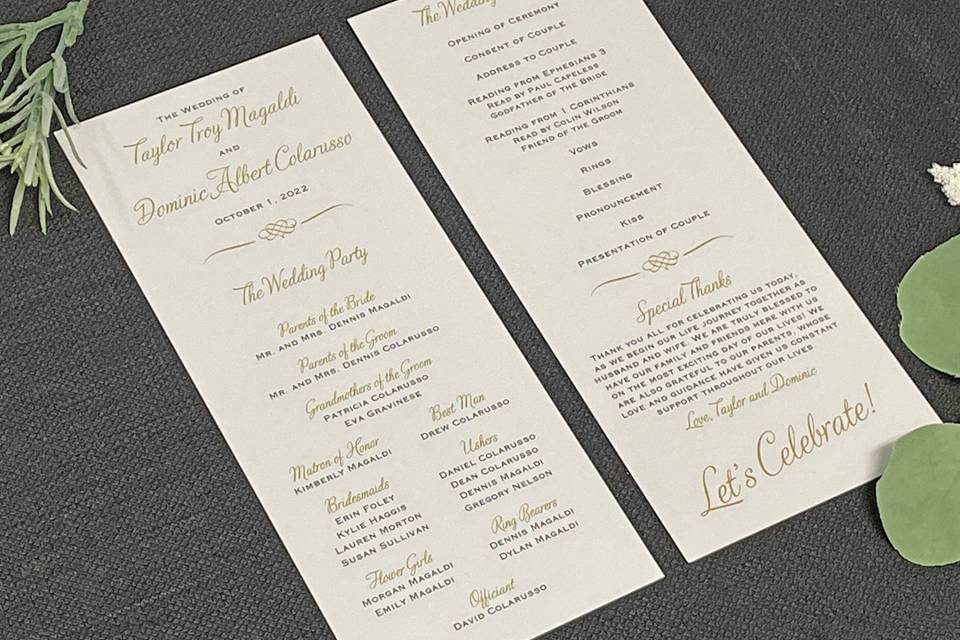 The Wedding of
Taylor Troy Magaldi
and
Dominic Albert Colarusso
October 1, 2022
The Wedding Party
Parents of the Bride
Mr. and Mrs. Dennis Magaldi
Parents of the Groom
Mr. and Mrs. Dennis Colarusso
Grandmothers of the Groom
Patricia Colarusso
Eva Gravinese
Matron of Honor
Kimberly Magaldi
Bridesmaids
Erin Foley
Kylie Haggis
Lauren Morton
Susan Sullivan
Flower Girls
Morgan Magaldi
Emily Magaldi
Best Man
Drew Colarusso
Ushers
Daniel Colarusso
Dean Colarusso
Dennis Magaldi
Gregory Nelson
Ring Bearers
Dennis Magaldi
Dylan Magaldi
Officiant
David Colarusso
The Wedding
Opening of Ceremony
Consent of Couple
Address to Couple
Reading from Ephesians 3
Read by Paul Capeless
Godfather of the Bride
Reading from 1 Corinthians
Read by Colin Wilson
Friend of the Groom
Vows
Rings
Blessing
Pronouncement
Kiss
Presentation of Couple
Special Thanks
Thank you all for celebrating us today,
as we begin our life journey together as
husband and wife. We are truly blessed to
have our family and friends here with us
on the most exciting day of our lives! We
are also grateful to our parents, whose
love and guidance have given us constant
support throughout our lives
Love, Taylor and Dominic
Let's Celebrate!